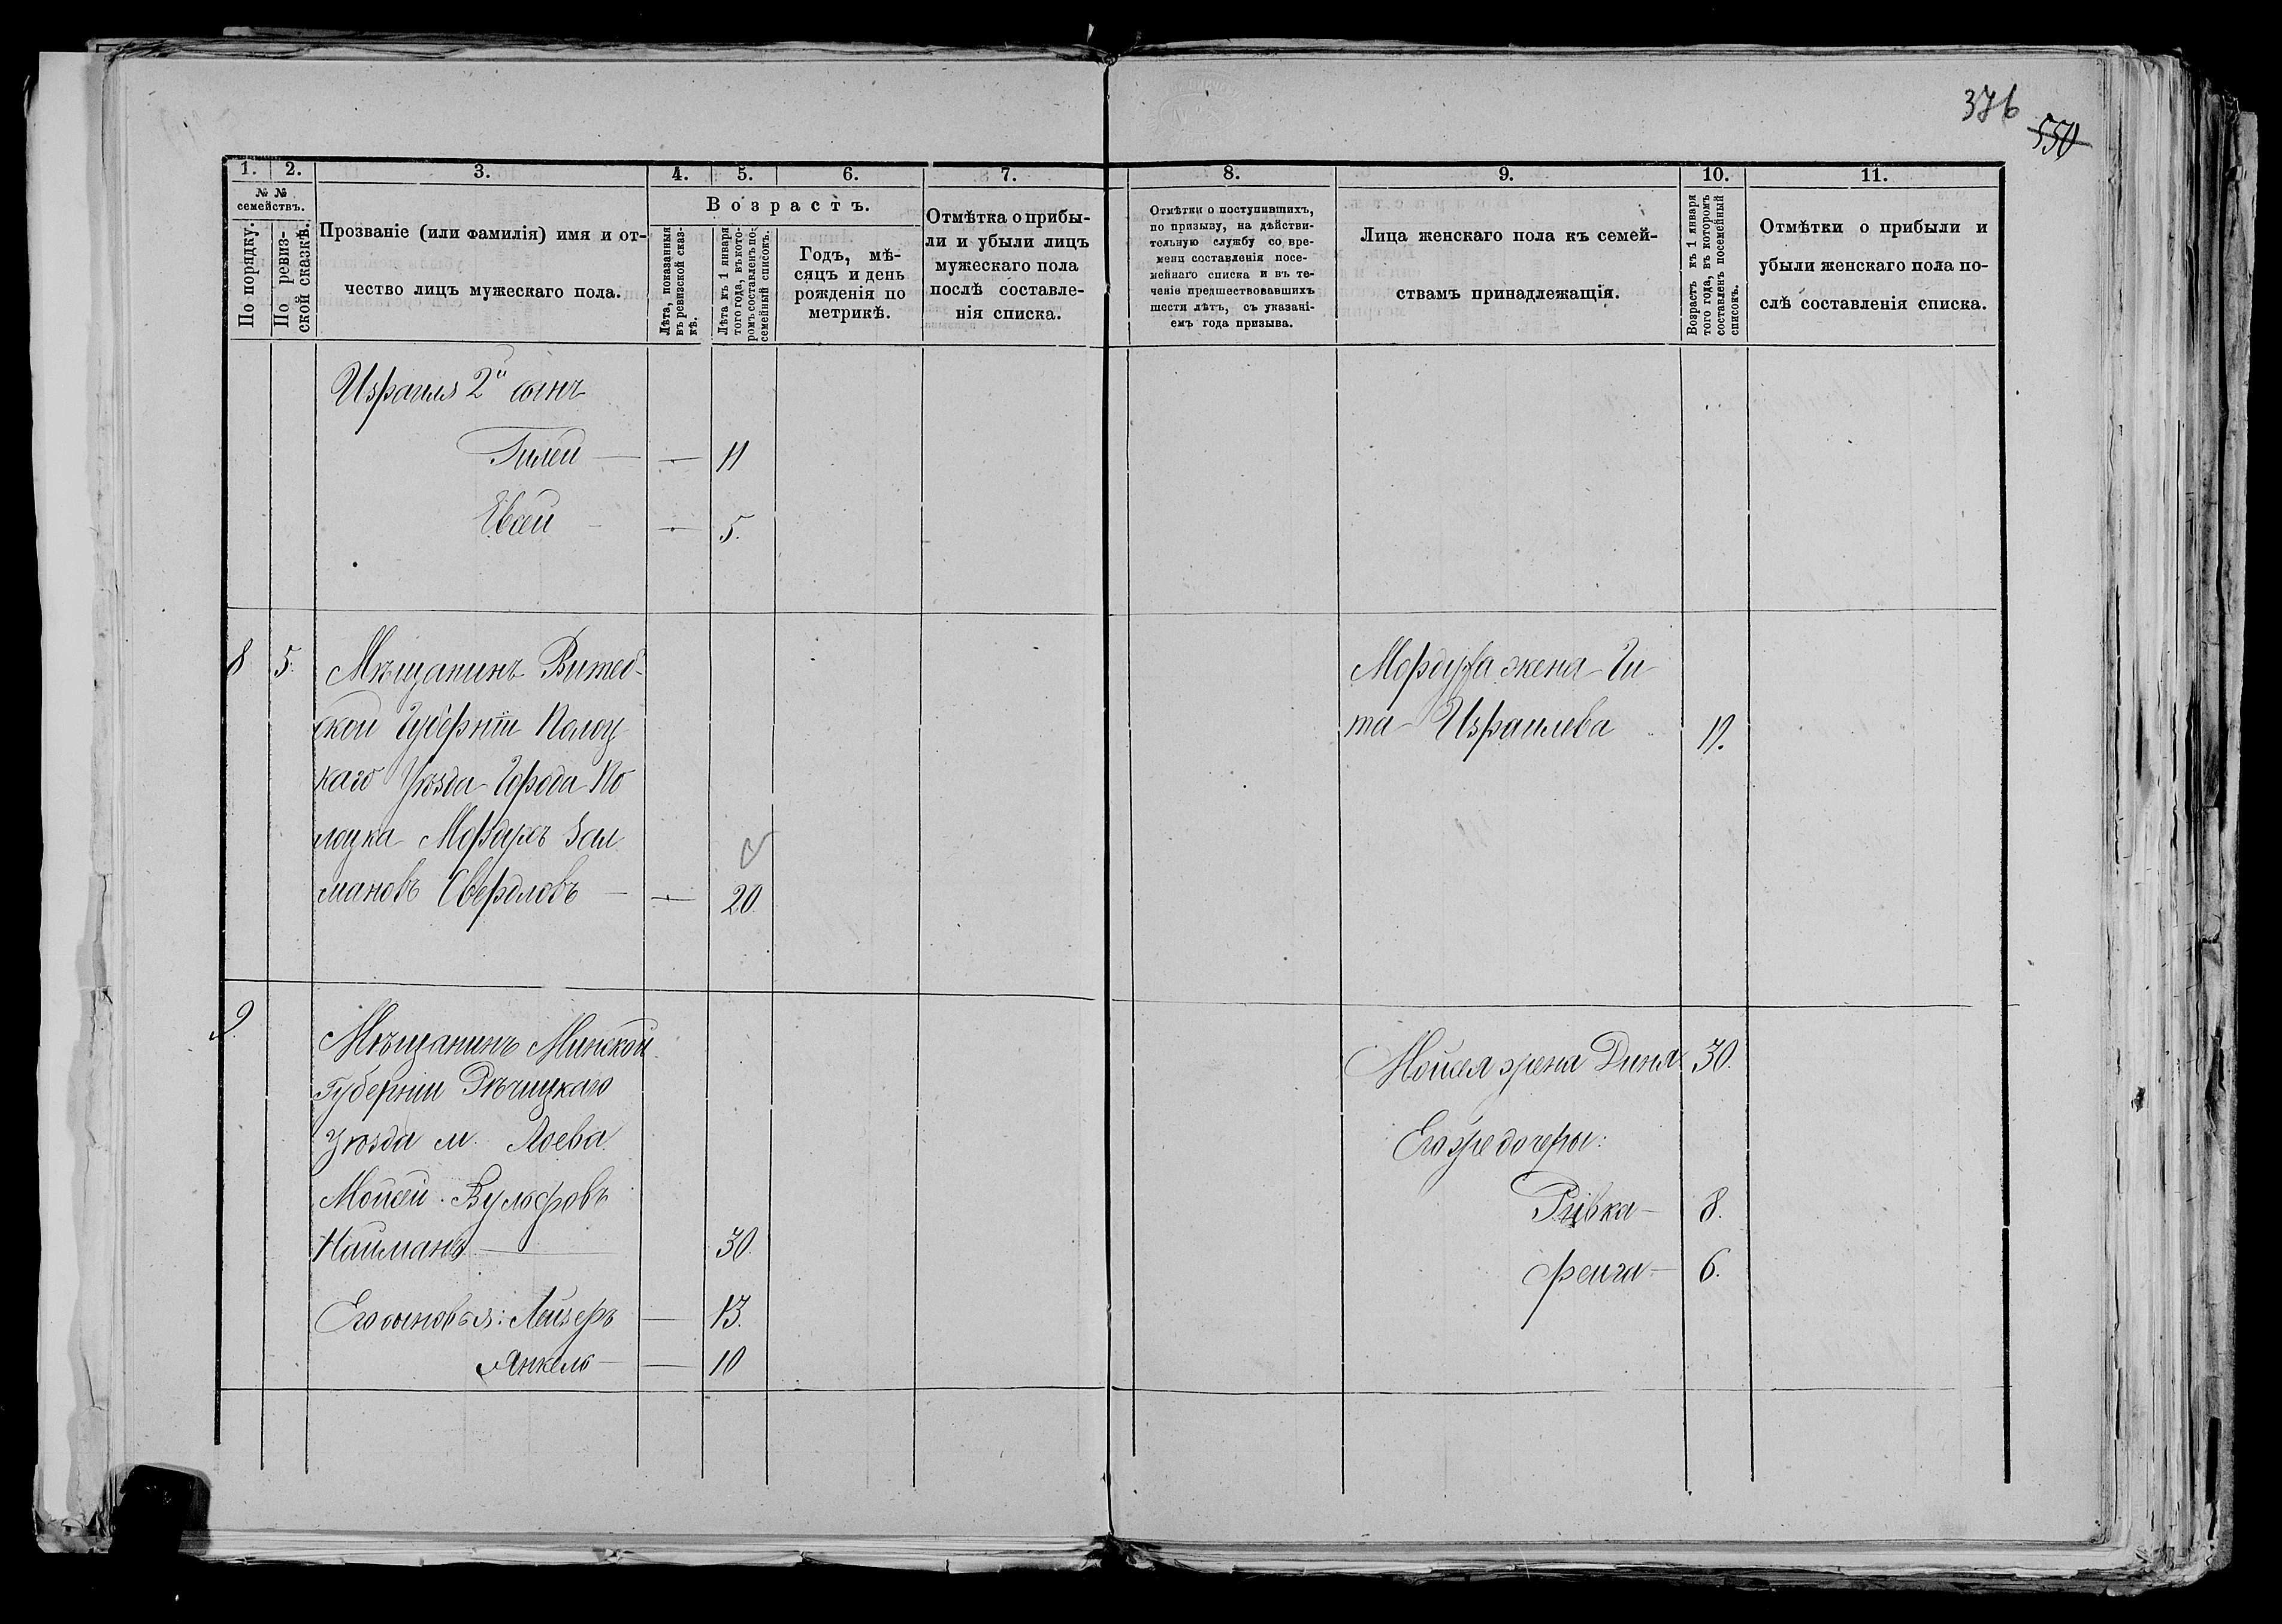 376
550
1.
2.
3.
4.
5.
6.
7.
8.
9.
10.
11.
№ №
семействъ.
По порядку.
По ревиз-
ской сказкѣ.
Прозваніе (или фамилія) имя и от-
чество лицъ мужескаго пола.
Возрастъ.
Лѣта, показанныя
въ ревизской сказ-
кѣ.
Лѣта къ 1 января
того года, въ кото-
ромъ составленъ по-
семейный списокъ.
Годъ, мѣ-
сяцъ и день
рожденія по
метрикѣ.
Отмѣтка о прибы-
ли и убыли лицъ
мужескаго пола
послѣ составле-
нія списка.
Отмѣтки о поступившихъ,
по призыву, на дѣйстви-
тельную службу со вре-
мени составленія посе-
мейнаго списка и въ те-
ченіе предшествовавшихъ
шести лѣтъ, съ указані-
емъ года призыва.
Лица женскаго пола къ семей-
ствамъ принадлежащія.
Возрастъ къ 1 января
того года, въ которомъ
составленъ посемейный
списокъ.
Отмѣтки о прибыли и
убыли женскаго пола по-
слѣ составленія списка.
Израиля 2й сынъ
Гилеи — — 11
Евсеи — — 5.
8 5. Мѣщанинъ Витеб-
ской Губерніи Полоц
каго Уѣзда Города По
лоцка Мордухъ Зал
мановъ Свердловъ — — 20.
Мордуха жена Ги
та Израилева
9. Мѣщанинъ Минской
Губерніи Рѣчицкаго
Уѣзда м. Лоева
Мойсей Вульфовъ
Найманъ — 30.
Его сыновья: Лейзеръ — 13.
Янкель — — 10
Мойсея жена Диня 30.
Его же дочеры:
Ривка — 8.
Фейга — 6.